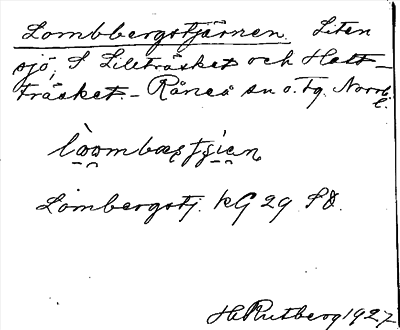 Lombbergstjärnen. Liten
sjö, S Lillträsket och Hatt-
träsket. Råneå sn o. tg. Norrb. l.
Lombergstj. KG 29 SO.
H Rutberg 1927